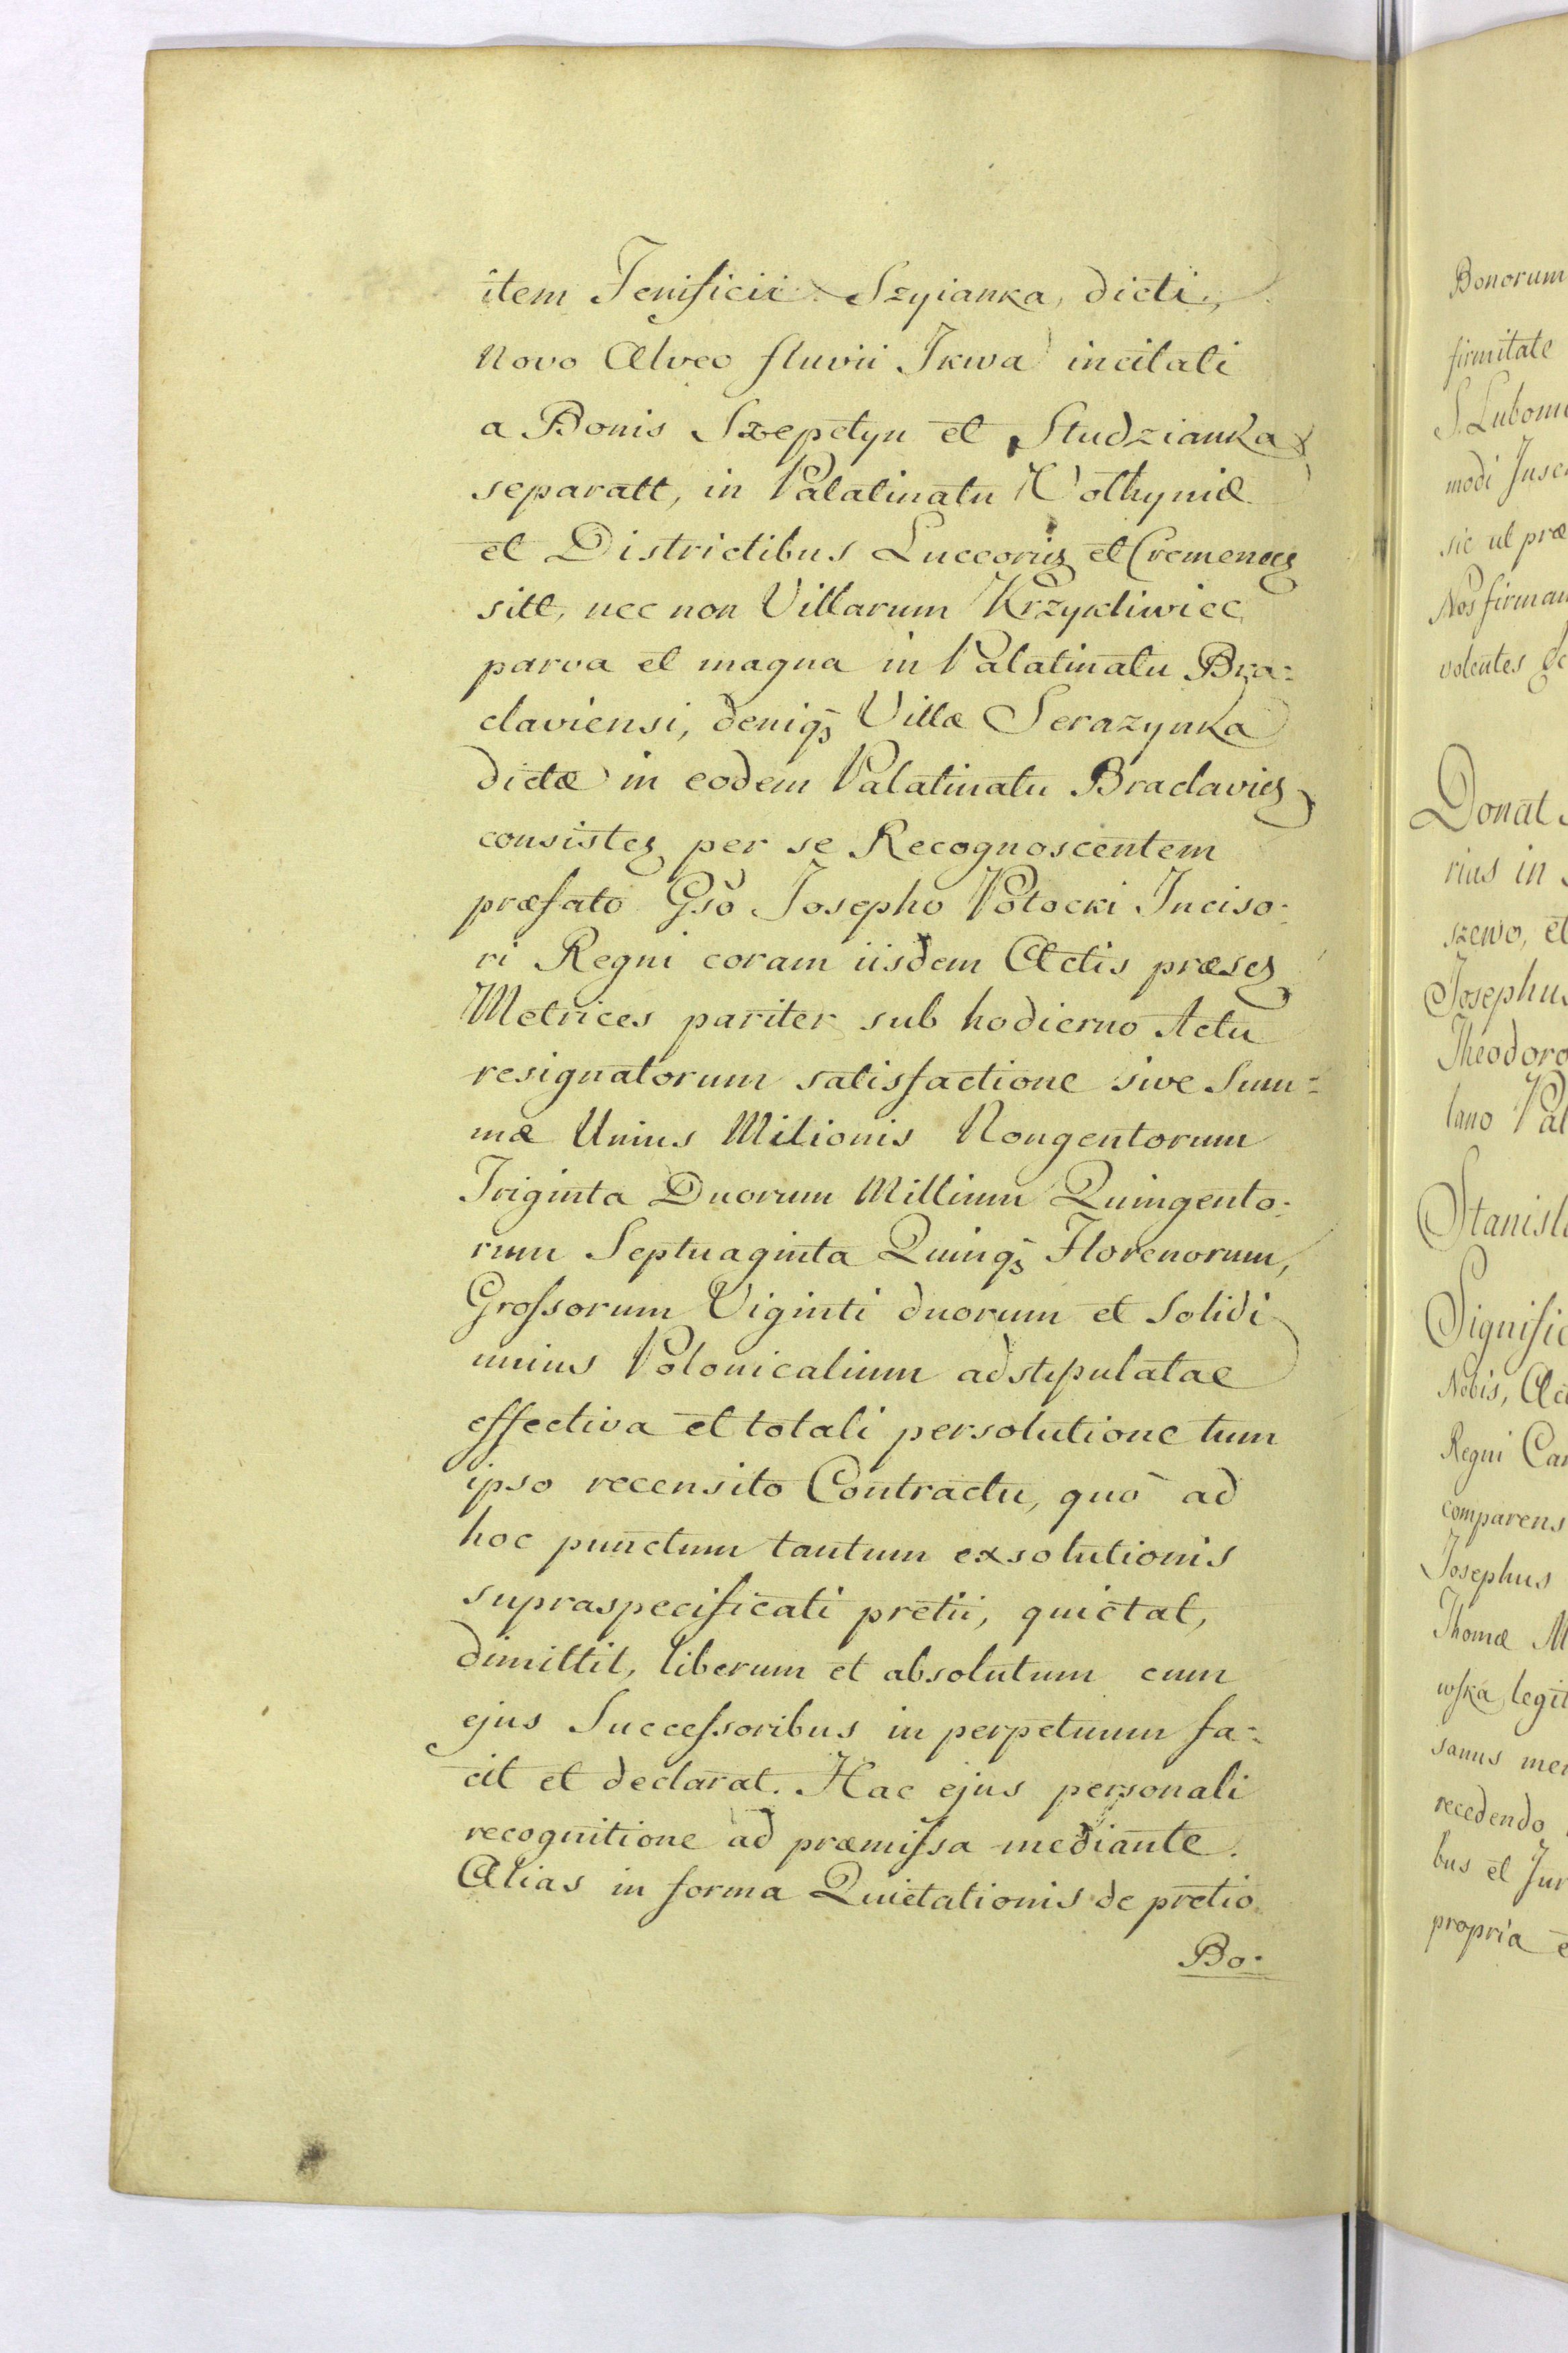 item Fenificii Szyianka, dicti,
Novo Alveo fluvii Ikwa incitati
a Bonis Szepetyn et Studzianka
separatt, in Palatinatu Volhyniæ
et Districtibus Luccoriẽz et Cremenecz
sitt, nec non Villarum Krzykliwiec
parva et magna in Palatinatu Bra=
claviensi, deniqꝫ Villæ Serazynka
dictæ in eodem Palatinatu Braclaviez
consistez per se Recognoscentem
præfato Gso Josepho Potocki Inciso=
ri Regni coram iisdem Actis præsez
Metrices pariter sub hodierno Actu
resignatorum satisfactione sive Sum=
mæ Unius Milionis Nongentorum
Triginta Duorum Millium Quingento=
rum Septuaginta Quinqꝫ Florenorum,
Grossorum Viginti duorum et Solidi
unius Polonicalium adstipulatae
effectiva et totali persolutione tum
ipso recensito Contractu, quò ad
hoc punctum tantum exsolutionis
supraspecificati pretii, quietat,
dimittit, liberum et absolutum cum
ejus Successoribus in perpetuum fa=
cit et declarat. Hac ejus personali
recognitione ad præmissa mediante.
Alias in forma Quietationis de pretio
Bo=
Bonorum
firmitate
modi
sic ut præ
Nos
volentes
Donat
rius in
szewo, et
Josephus
Theodoro
lano Pal
Stanisl
Signific
Nobis, Ac
Regni Can
comparens
Josephus
Thomæ M
wska legit
sanus men
recedendo
bus et Jur
propria e